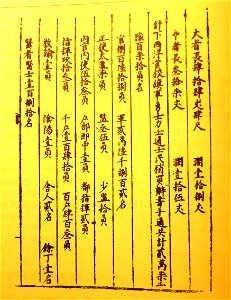 大者長肆拾肆丈肆尺　濶壹拾捌丈
中者長叁拾柒丈　濶壹拾伍丈
計下西洋官校旗軍勇士力士通士民稍買辦書手通共計貳萬柒千
陸百柒拾員名
官捌百陸拾捌員　軍貳萬陸千捌百貳名
正使太監柒員　監丞伍員　少監拾員
内官内使伍拾叁員　户部郎中壹員　都指揮貳員
指揮玖拾叁員　千户壹百肆拾員　百户肆百叁員
教諭壹員　陰陽壹員　舍人貳名　餘丁壹名
醫官醫士壹百捌拾名